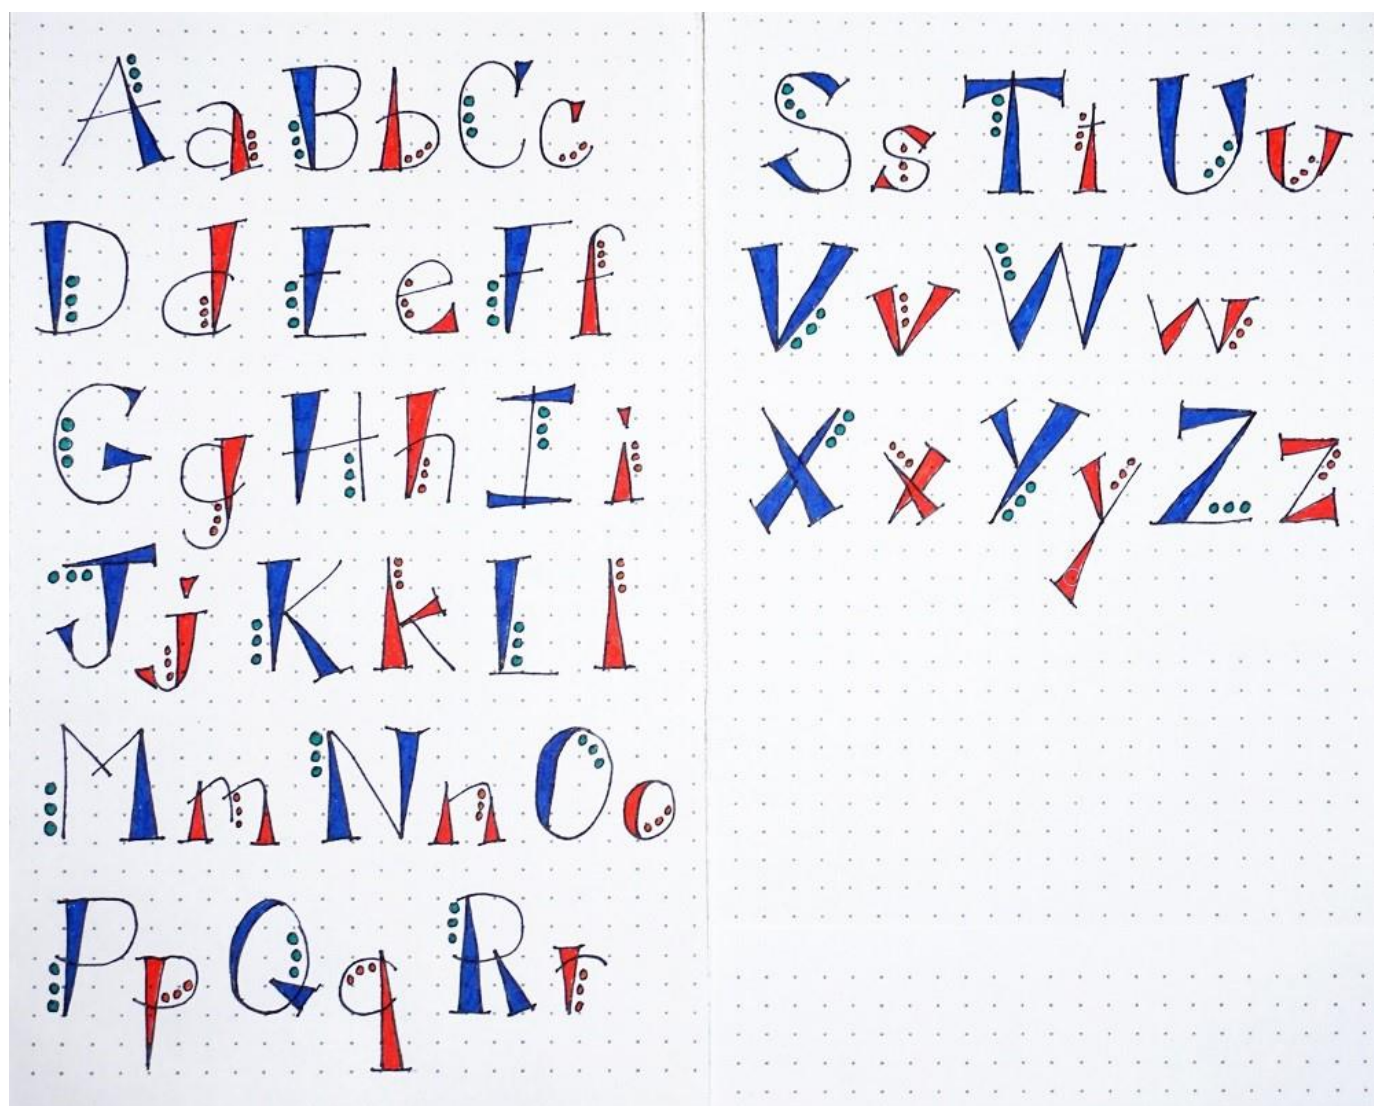 Aa Bb Cc
Dd Ee Ff
Gg Hh Ii
Jj Kk Ll
Mm Nn Oo
Pp Qq Rr
Ss Tt Uu
Vv Ww
Xx Yy Zz